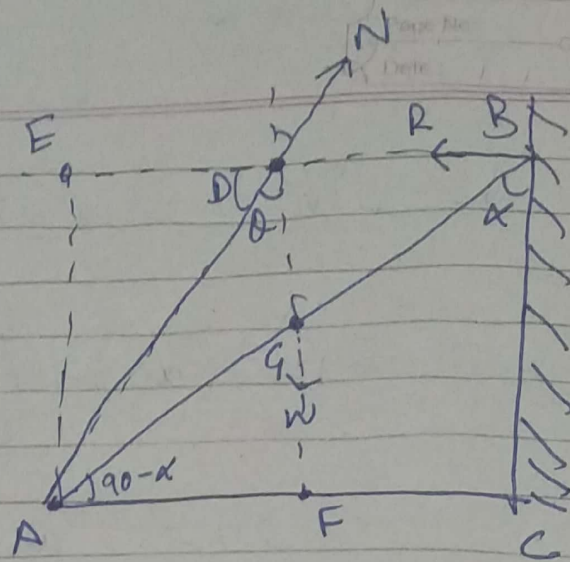 N
Page No.
Date / /
E
R
B
D
θ
α
G
W
90-α
A
F
C